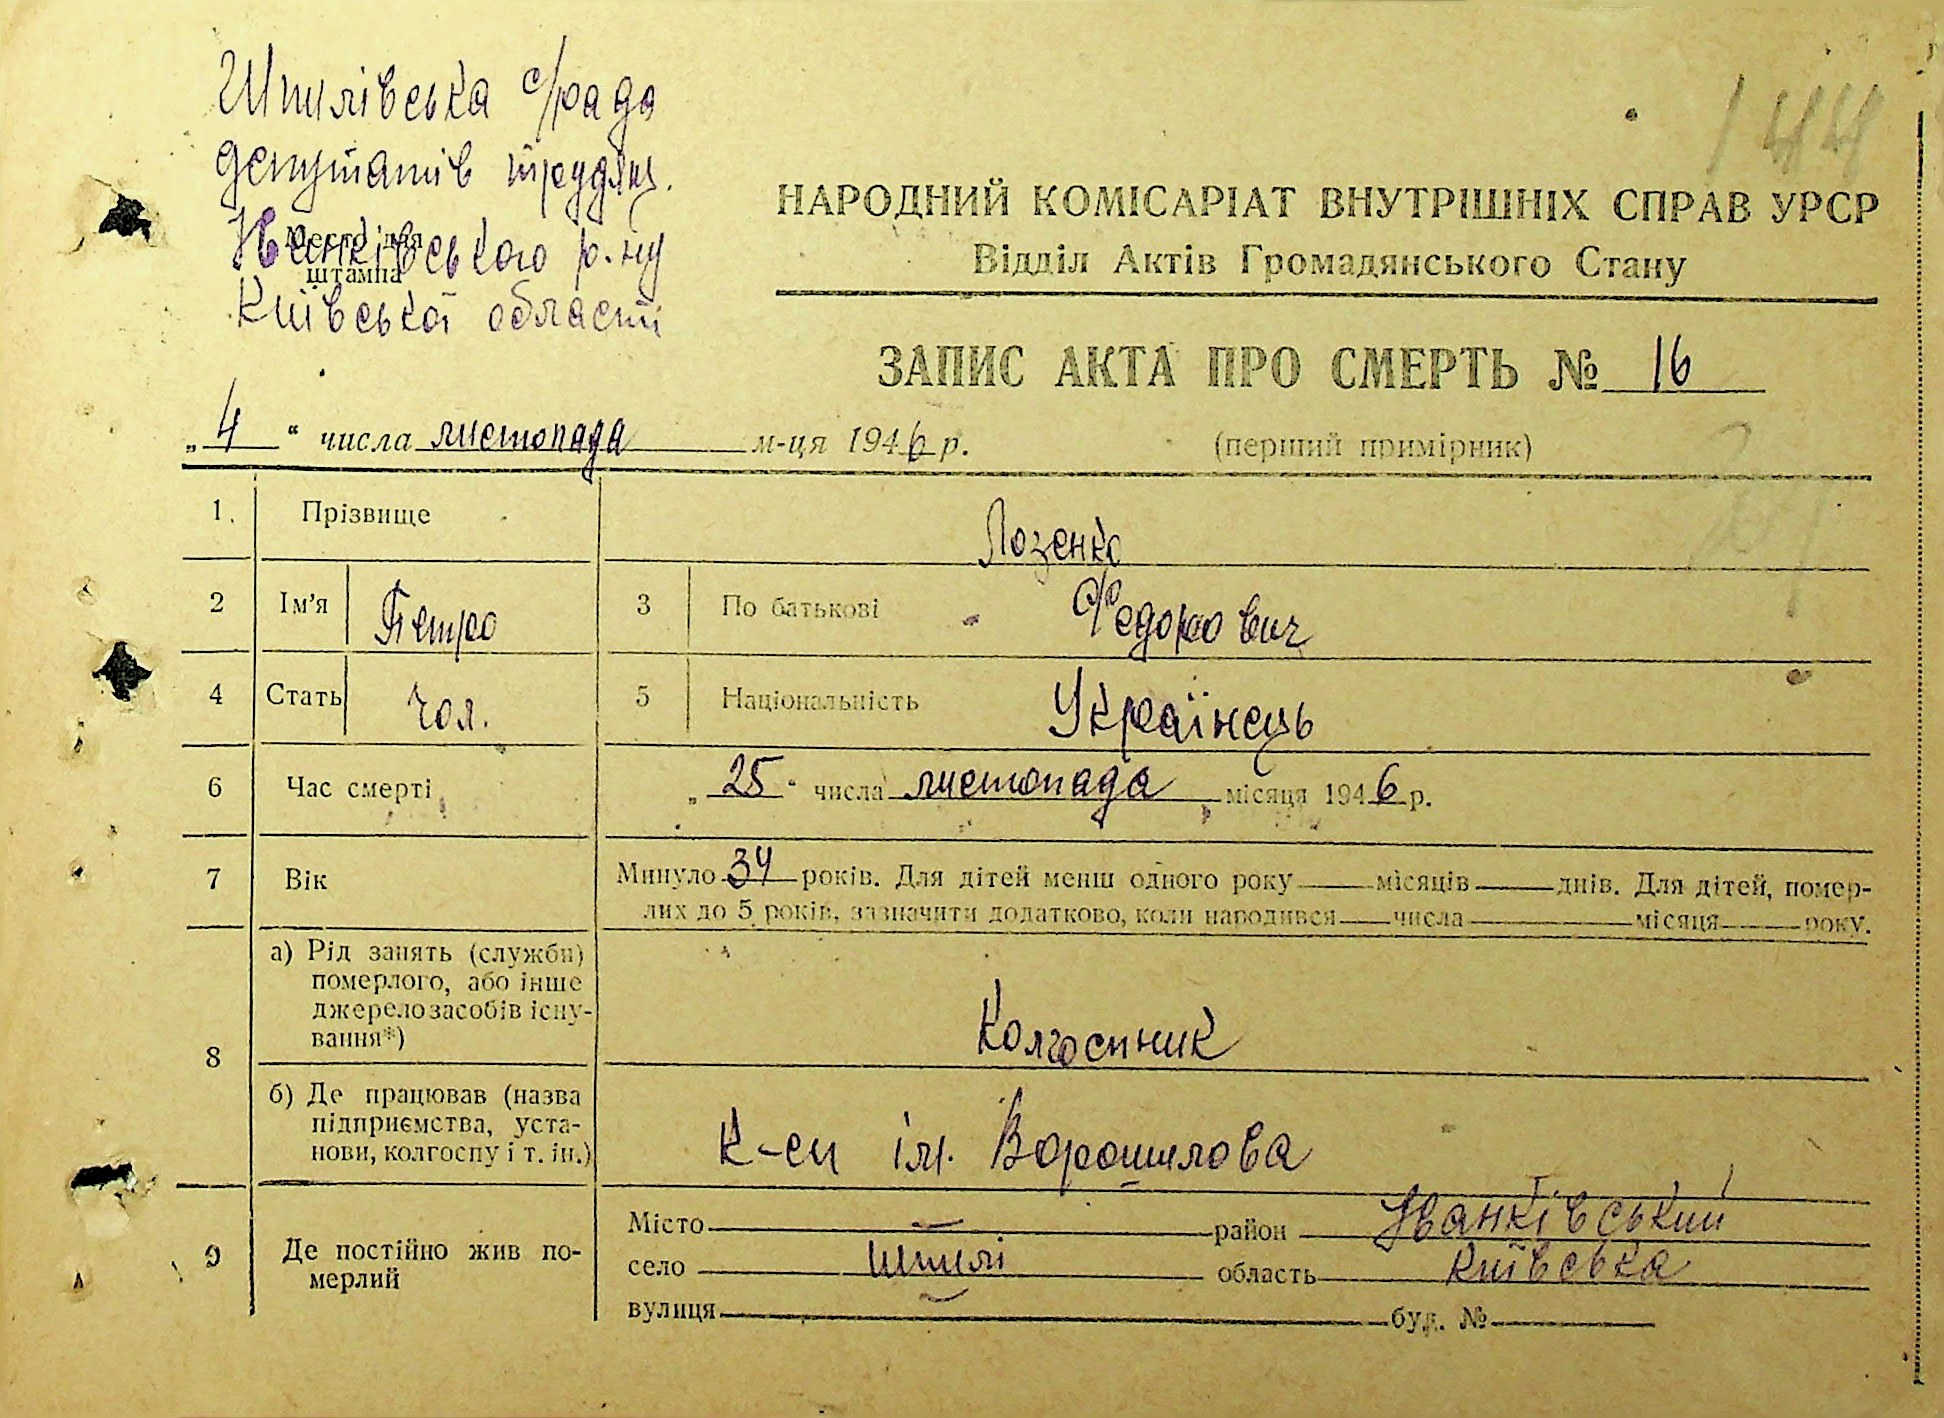 144
Шпилівська с/рада
депутатів трудящ.
Іванківського р-ну
Київської області
Место для
штампа
НАРОДНИЙ КОМІСАРІАТ ВНУТРІШНІХ СПРАВ УРСР
Відділ Актів Громадянського Стану
ЗАПИС АКТА ПРО СМЕРТЬ № 16
„ 4 “ числа листопада м-ця 1946 р. (перший примірник)
1. Прізвище Лозенко
2 Ім'я Петро 3 По батькові Федорович
4 Стать Чол. 5 Національність Українець
6 Час смерті „ 25 “ числа листопада місяця 1946 р.
7 Вік Минуло 34 років. Для дітей менш одного року місяців днів. Для дітей, помер-
лих до 5 років, зазначити додатково, коли народився числа місяця року.
8 а) Рід занять (служби)
померлого, або інше
джерело засобів існу-
вання*)
Колгоспник
б) Де працював (назва
підприємства, уста-
нови, колгоспу і т. ін.)
К-сп ім. Ворошилова
9 Де постійно жив по-
мерлий
Місто — район Іванківський
село Шпилі область Київська
вулиця — буд. №